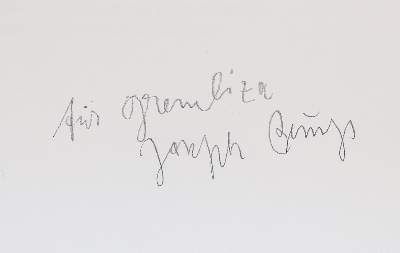 für gremliza
Joseph Beuys